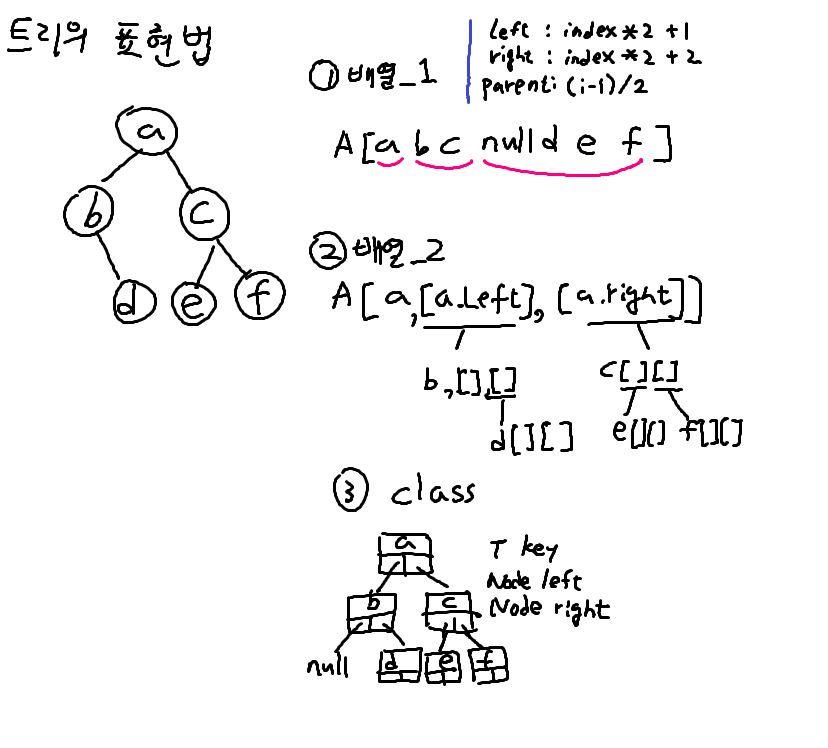 트리의 표현법
① 배열_1
left : index*2 +1
right : index*2 + 2
parent: (i-1)/2
A[a b c null d e f]
a
b c
d e f
② 배열_2
A[a,[a.left],[a.right]]
b,[],[]
c[][]
d[][]
e[][] f[][]
③ class
a
b c
null d e f
T key
Node left
Node right